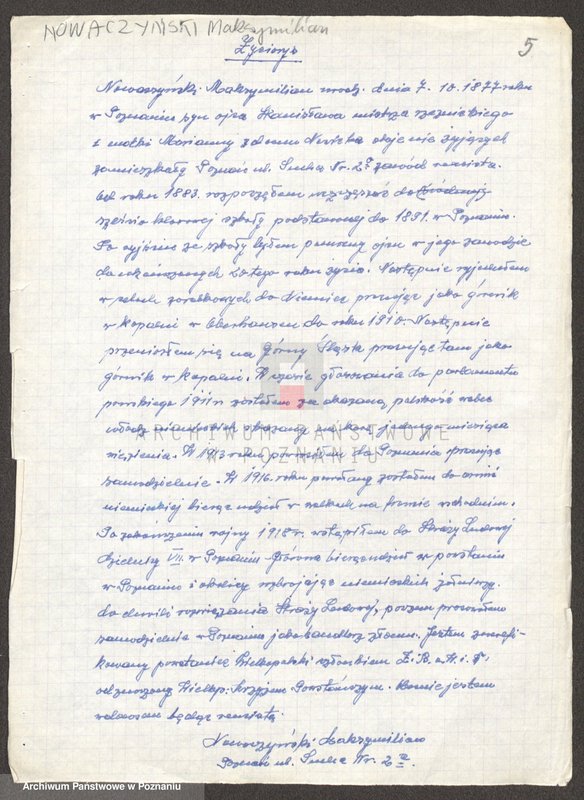 NOWACZYŃSKI Maksymilian
5
Życiorys
Nowaczyński Maksymilian urodz. dnia 7. 10. 1877 roku
w Poznaniu syn ojca Stanisława mistrza rzeźnickiego
i matki Marianny z domu oboje nie żyjących
zamieszkały Poznań ul. Sucha Nr. 2a zawód rencista.
Od roku 1883. rozpocząłem uczęszczać do
sześcio klasowej szkoły podstawowej do 1891. w Poznaniu.
Po wyjściu ze szkoły byłem pomocny ojcu w jego zawodzie
do ukończonych 20tego roku życia. Następnie wyjechałem
w celach zarobkowych do Niemiec pracując jako górnik
w kopalni w Oberhausen do roku 1910. Następnie
przeniosłem się na Górny Śląsk pracując tam jako
górnik w kopalni. W czasie głosowania do parlamentu
pruskiego 1911 r. zostałem za okazaną polskość wobec
władz niemieckich skazany na karę jednego miesiąca
więzienia. W 1913 roku do Poznania pracując
samodzielnie. W 1916. roku powołany zostałem do armii
niemieckiej biorąc udział w walkach na froncie wschodnim.
Po zakończeniu wojny 1918 r. wstąpiłem do Straży Ludowej
dzielnicy VII. w Poznaniu-Górna biorąc udział w powstaniu
w Poznaniu i okolicy rozbrajając niemieckich żołnierzy.
do chwili rozwiązania Straży Ludowej, poczem pracowałem
samodzielnie w Poznaniu jako handlarz złomu. Jestem zweryfi-
kowany powstaniec Wielkopolski członkiem Z.B.o.W.i.D.
odznaczony Wielkp. Krzyżem Powstańczym. Obecnie jestem
wdowcem będąc rencistą.
Nowaczyński Maksymilian
Poznań ul. Sucha Nr. 2a
ARCHIWUM PAŃSTWOWE
W POZNANIU
Archiwum Państwowe w Poznaniu